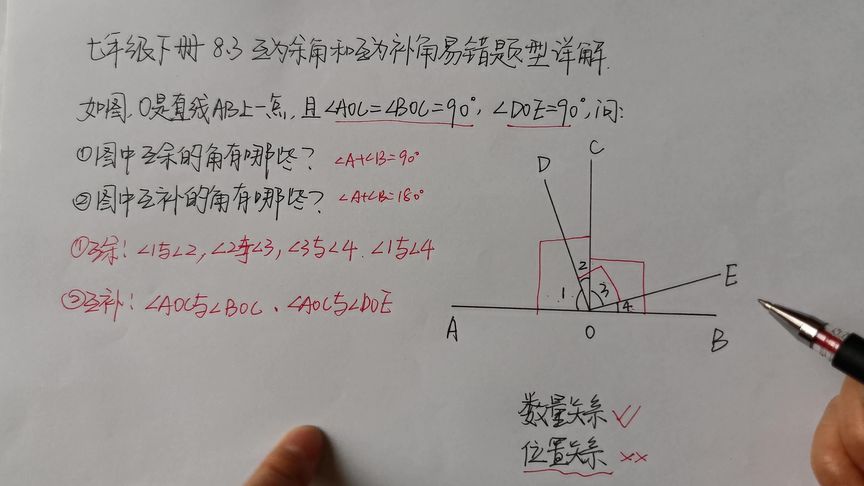 七年级下册 8.3 互为余角和互为补角易错题型详解.
如图,O是直线AB上一点,且∠AOC=∠BOC=90°,∠DOE=90°,问:
①图中互余的角有哪些? ∠A+∠B=90°
②图中互补的角有哪些? ∠A+∠B=180°
①互余:∠1与∠2,∠2与∠3,∠3与∠4.∠1与∠4
②互补:∠AOC与∠BOC、∠AOC与∠DOE
C
D
E
2
1 3
4
A O B
数量关系 ✓
位置关系 ××